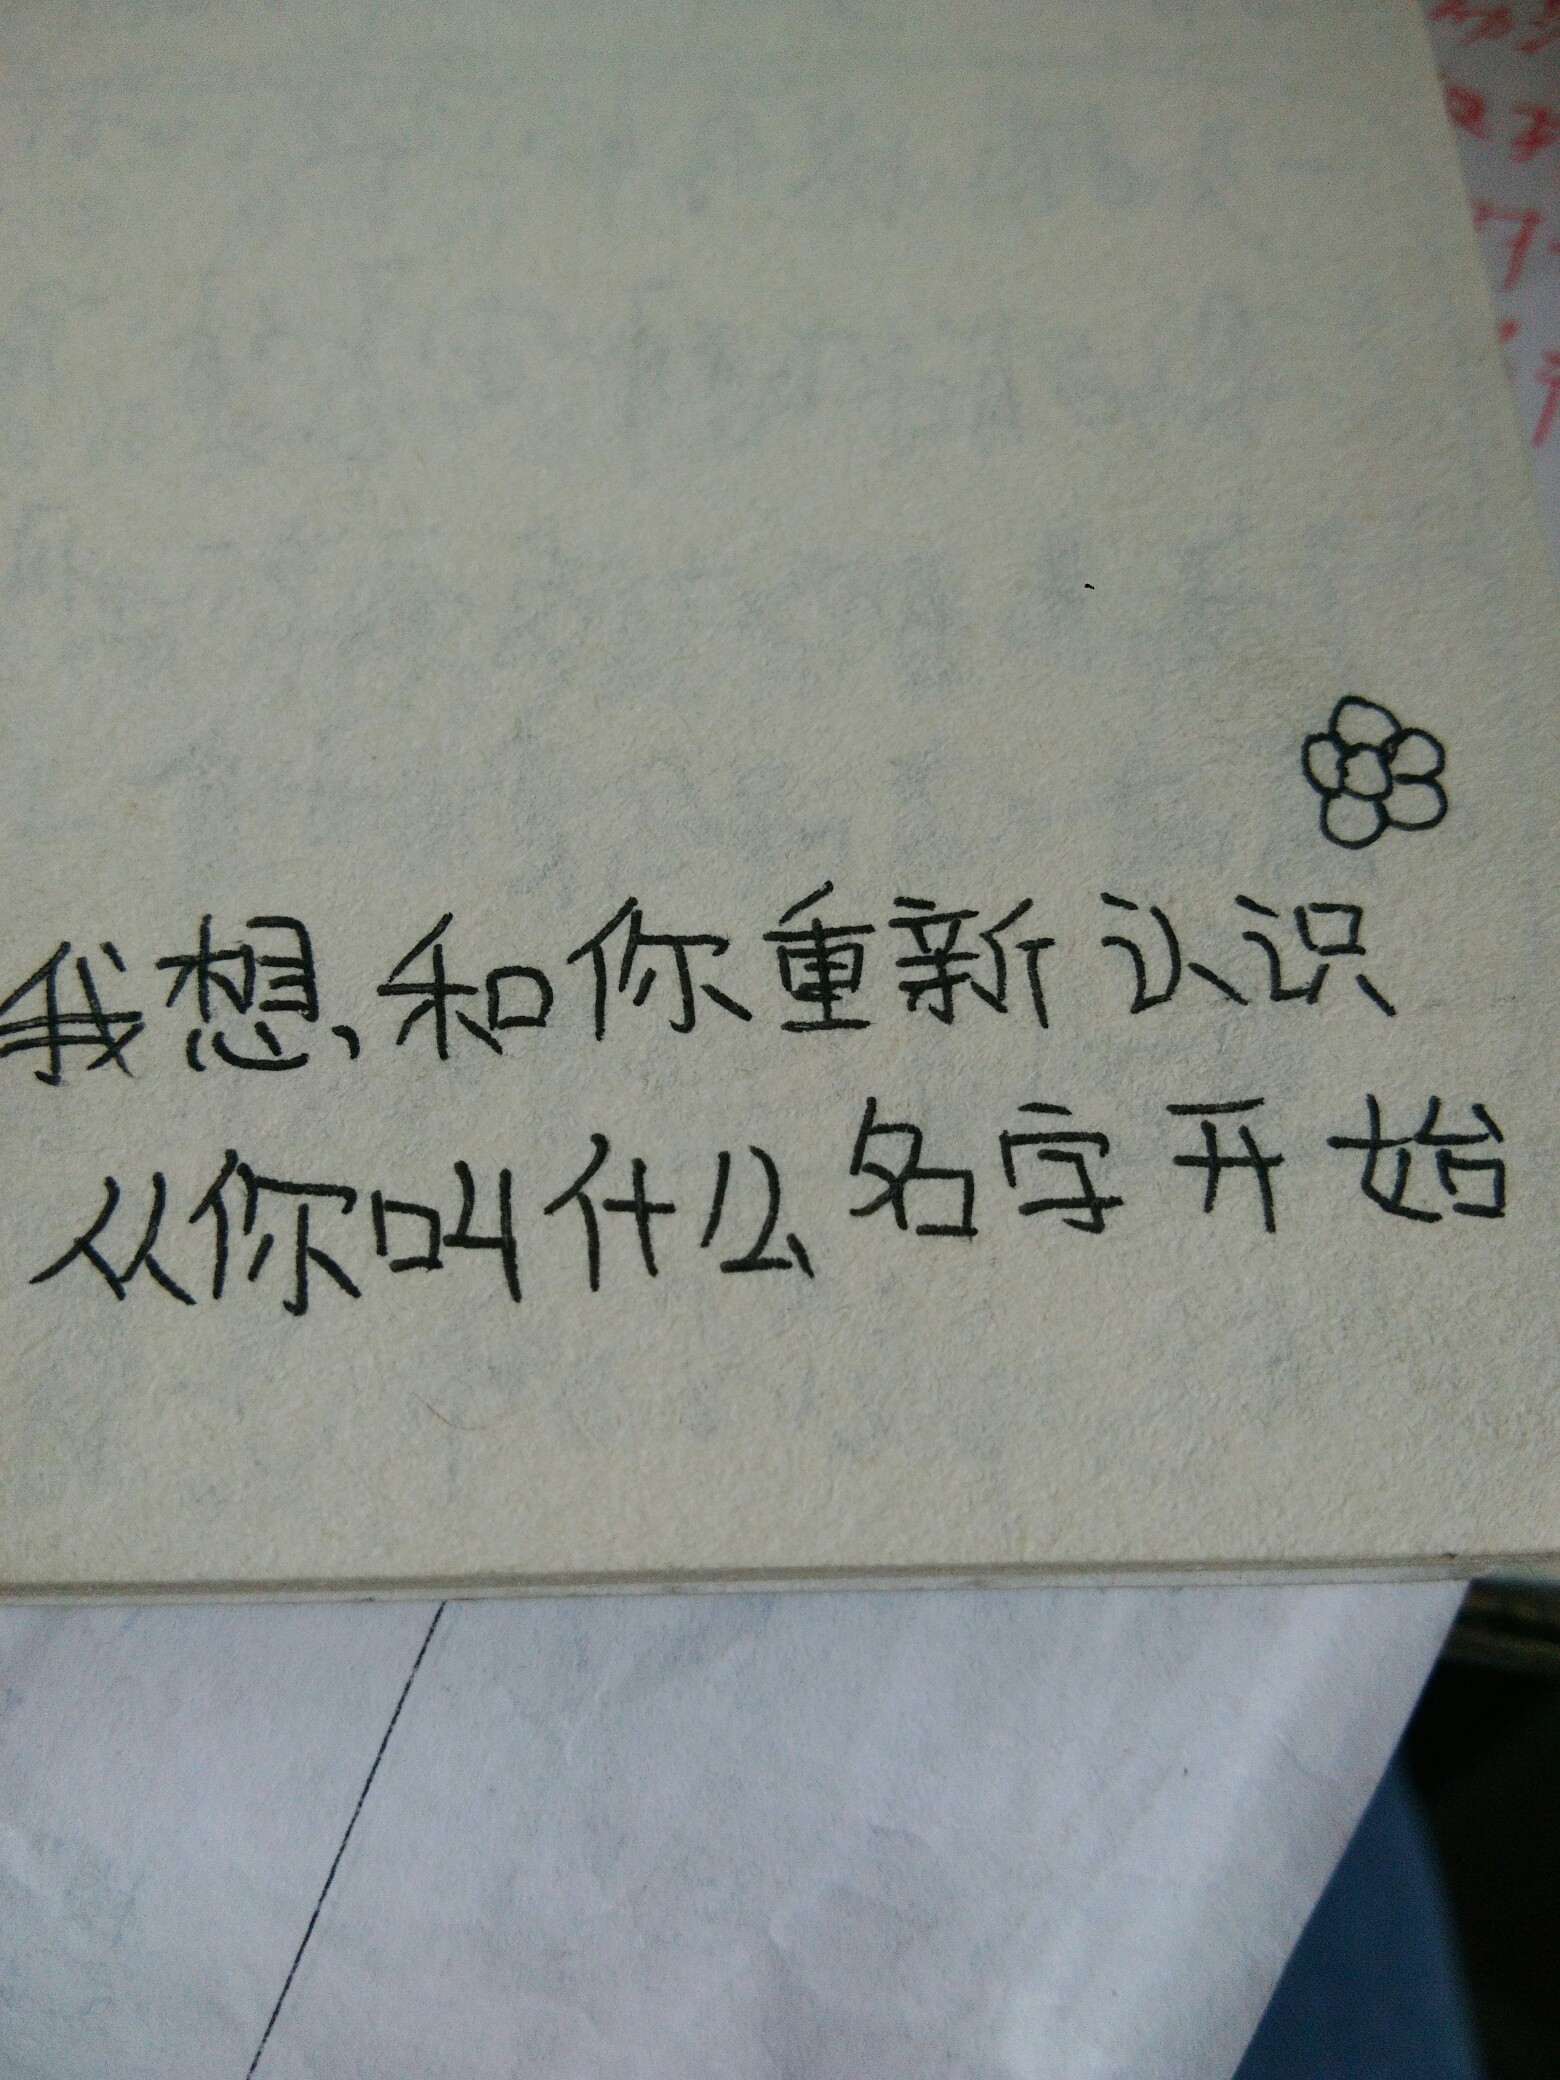 我想,和你重新认识
从你叫什么名字开始